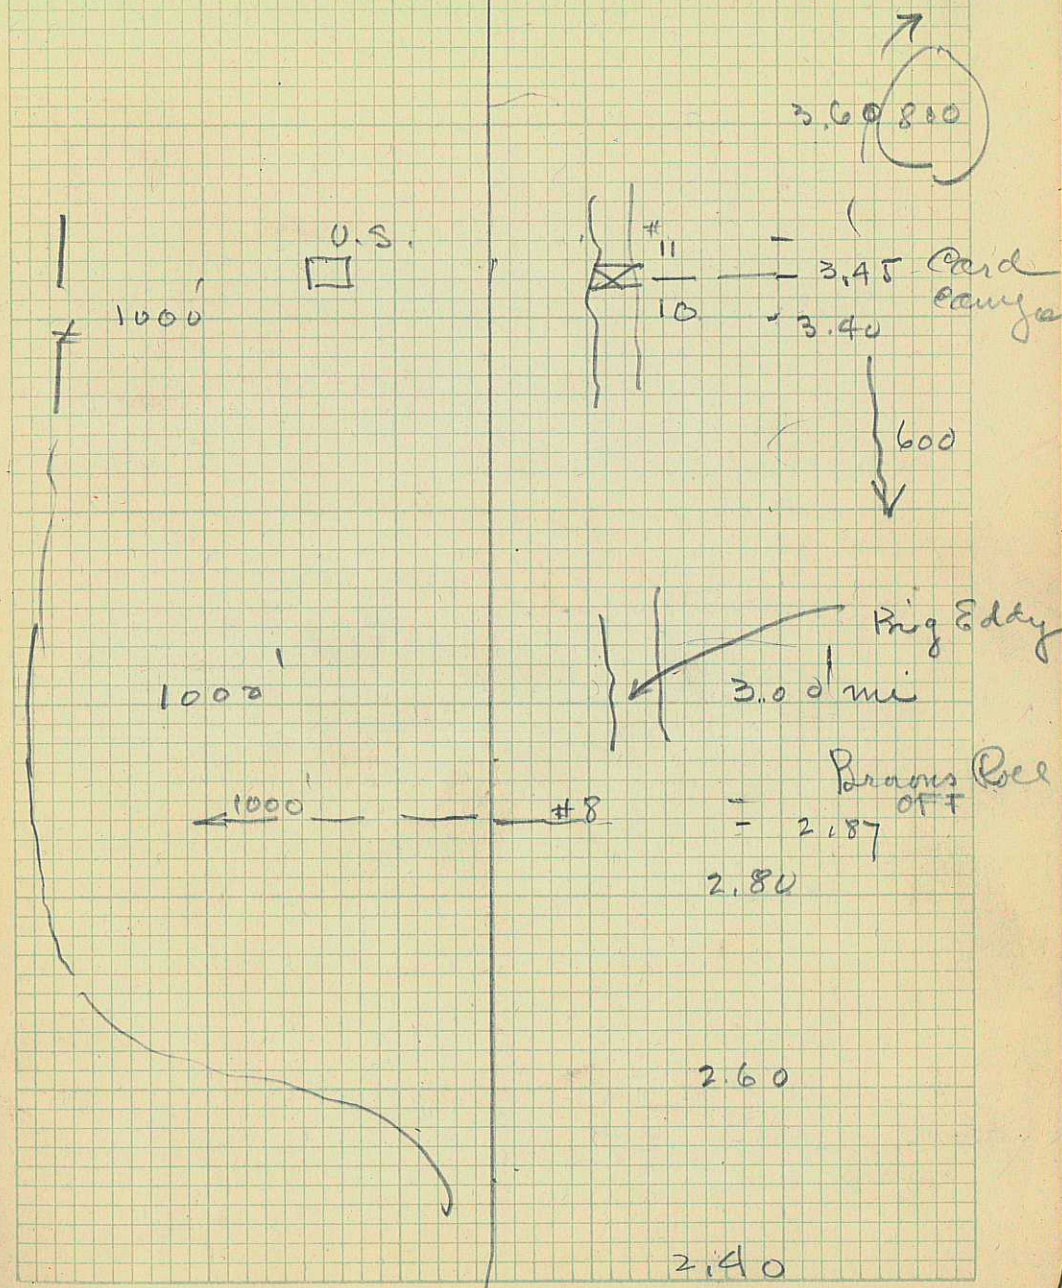 3.60 800
U.S.
1000'
#11
10
3.45 Card
3.40
600
Big Eddy
1000'
3.00 mi
Browns Roll
OFF
1000'
#8
2.87
2.80
2.60
2.40